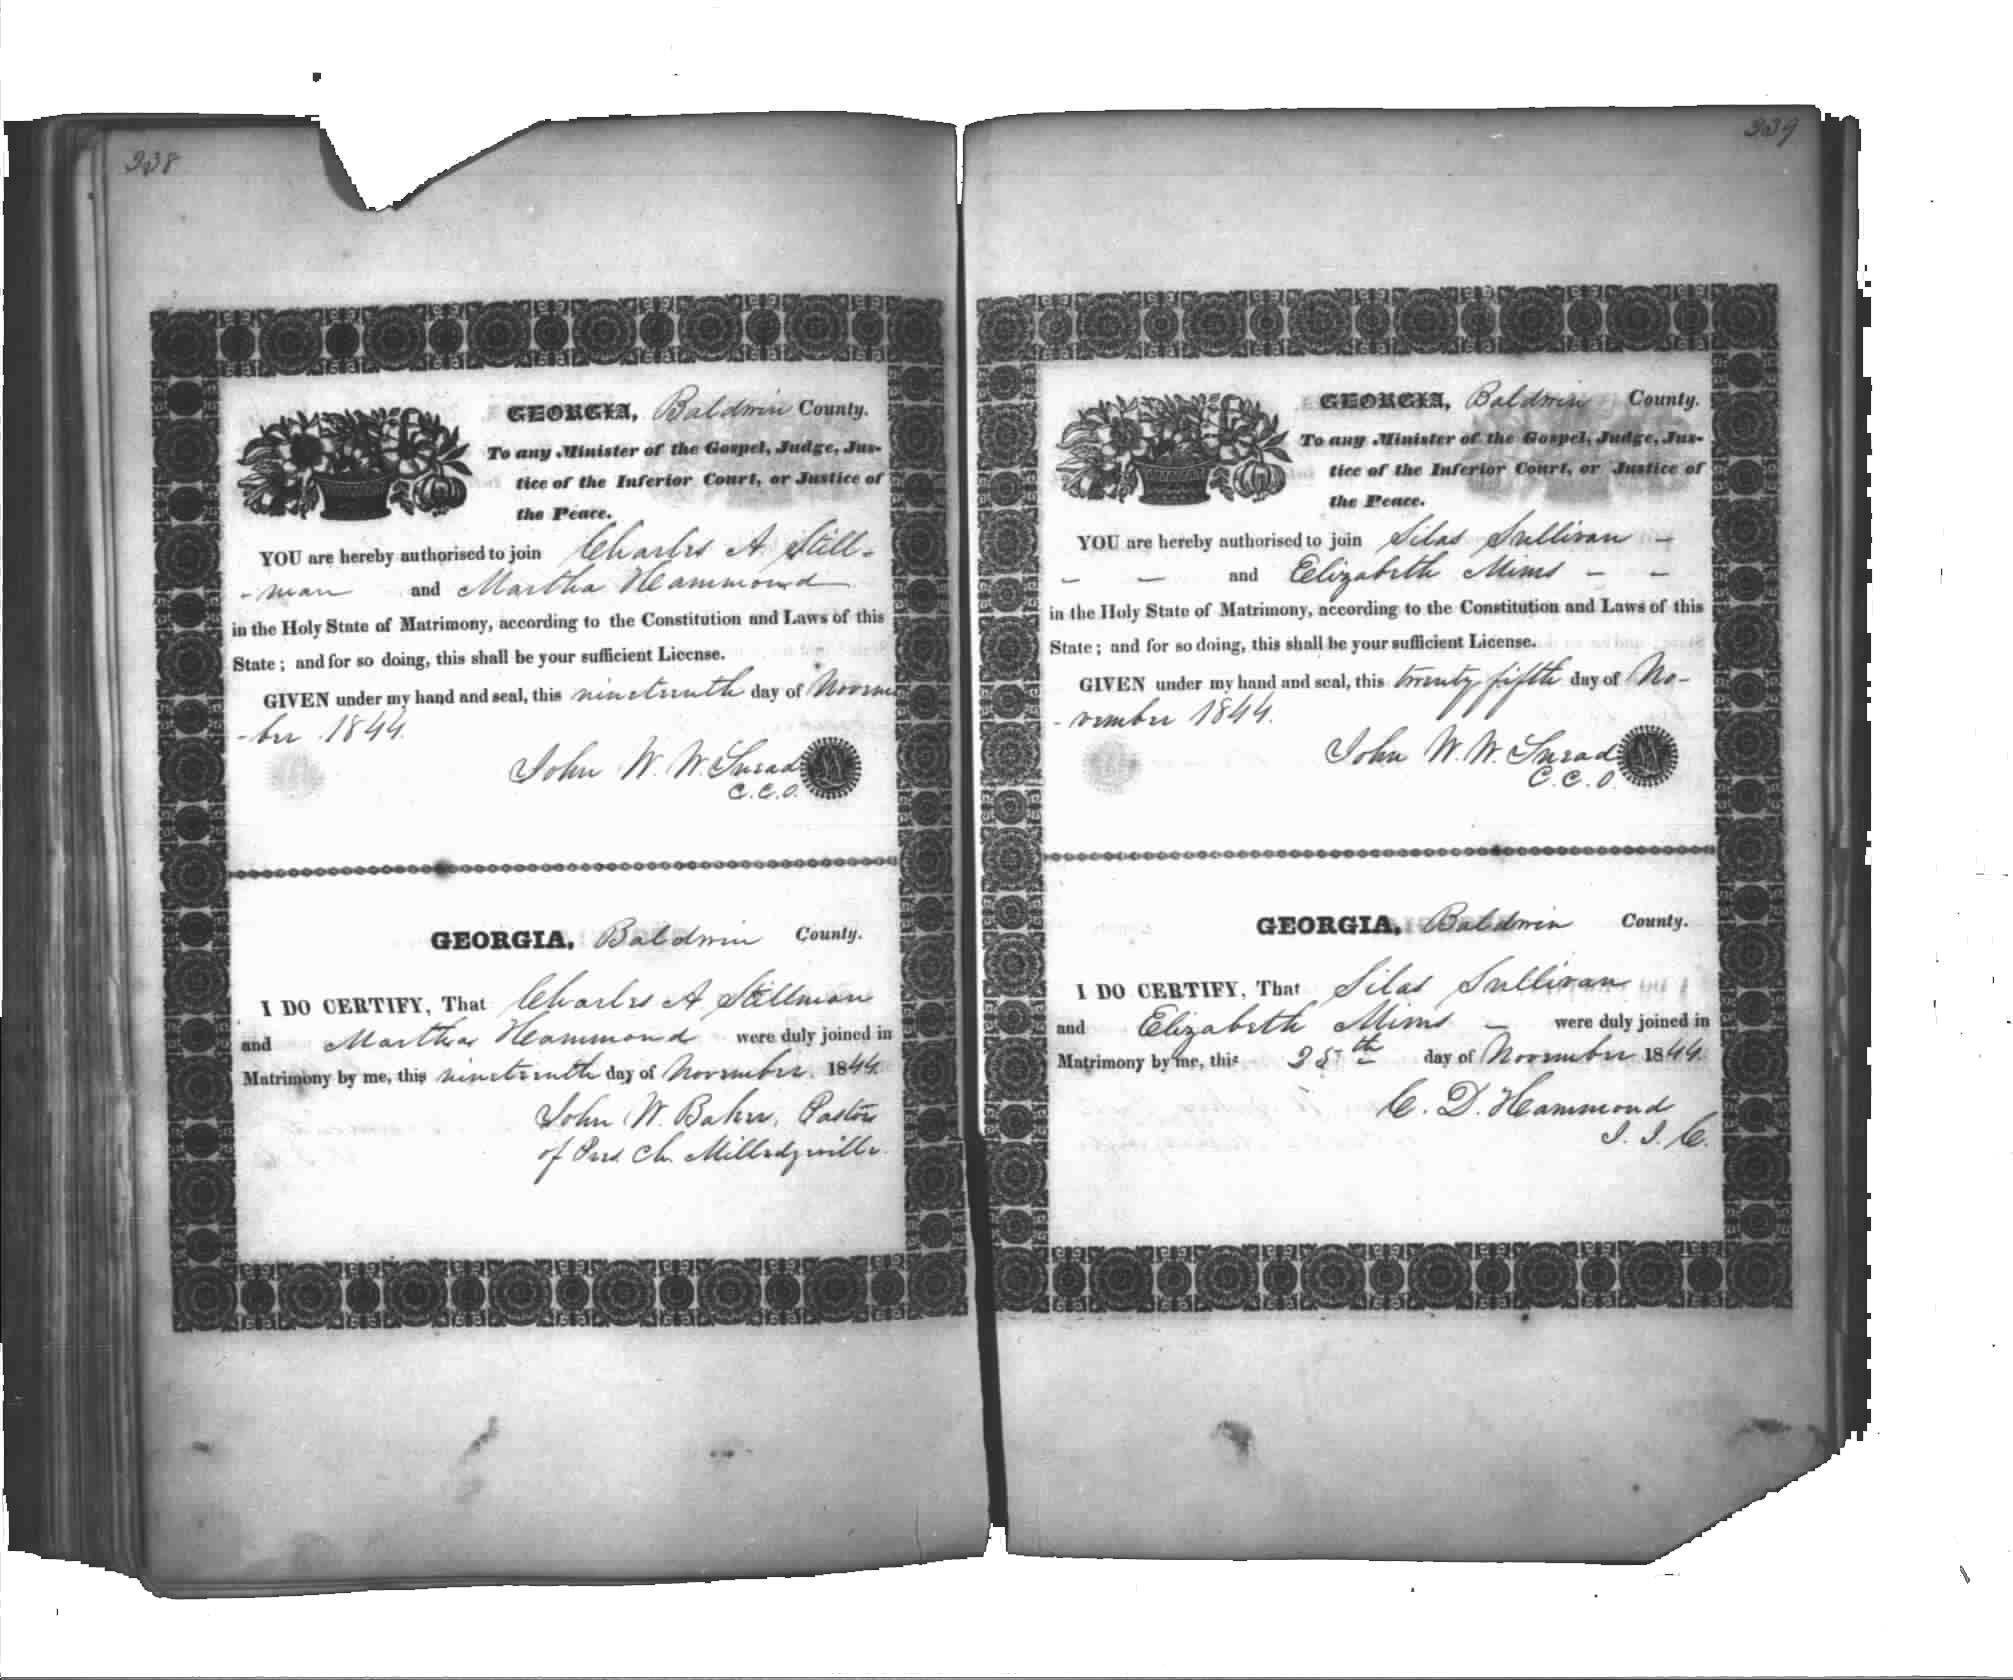 338
GEORGIA, Baldwin County.
To any Minister of the Gospel, Judge, Jus-
tice of the Inferior Court, or Justice of
the Peace.
YOU are hereby authorised to join Charles A. Still-
-man and Martha Hammond
in the Holy State of Matrimony, according to the Constitution and Laws of this
State; and for so doing, this shall be your sufficient License.
GIVEN under my hand and seal, this nineteenth day of Novem
-ber 1844.
John W. W. Snead
C. C. O.
GEORGIA, Baldwin County.
I DO CERTIFY, That Charles A Stillman
and Martha Hammond were duly joined in
Matrimony by me, this nineteenth day of November. 1844.
John W. Baker, Pastor
of Pres. Ch. Milledgeville.
339
GEORGIA, Baldwin County.
To any Minister of the Gospel, Judge, Jus-
tice of the Inferior Court, or Justice of
the Peace.
YOU are hereby authorised to join Silas Sullivan -
- - and Elizabeth Mims - -
in the Holy State of Matrimony, according to the Constitution and Laws of this
State; and for so doing, this shall be your sufficient License.
GIVEN under my hand and seal, this twenty fifth day of No-
-vember 1844.
John W. W. Snead
C. C. O.
GEORGIA, Baldwin County.
I DO CERTIFY, That Silas Sullivan
and Elizabeth Mims - were duly joined in
Matrimony by me, this 25th day of November 1844.
C. D. Hammond
J. I. C.